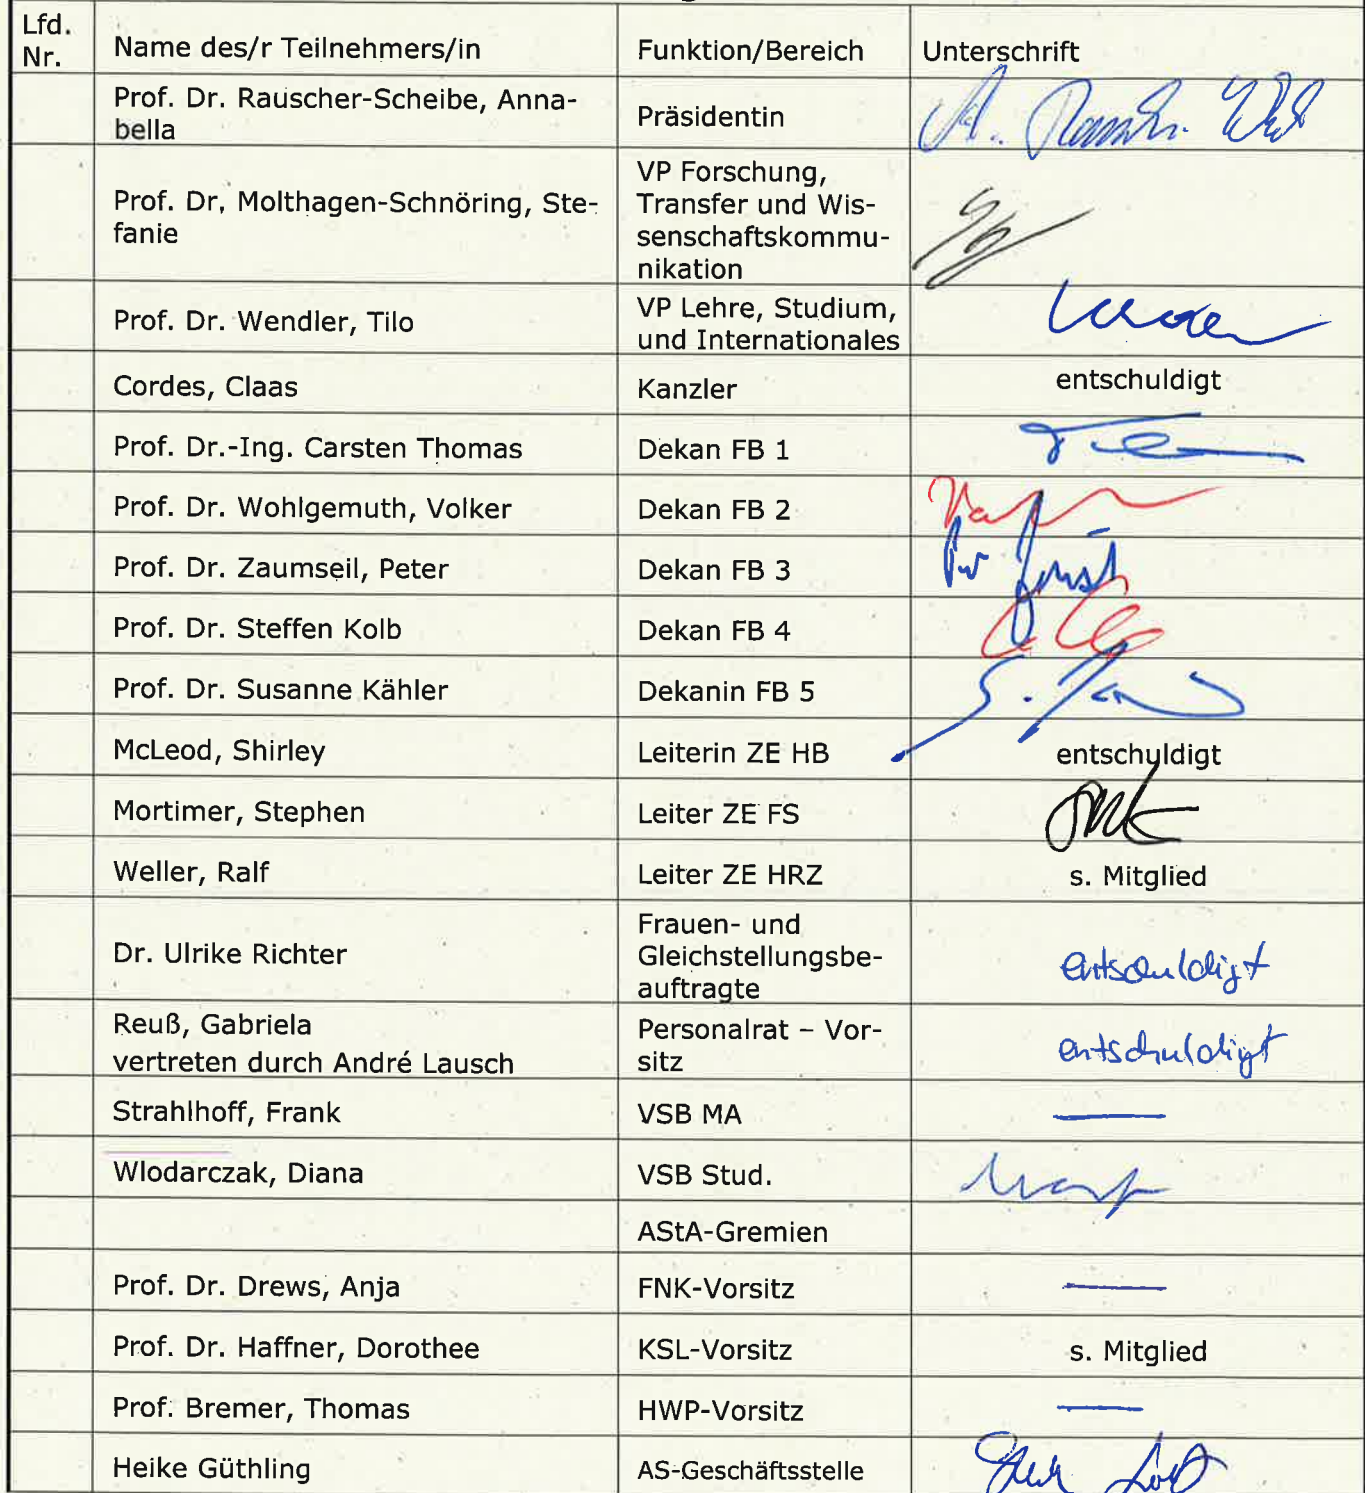 Lfd.
Nr.
Name des/r Teilnehmers/in
Funktion/Bereich
Unterschrift
Prof. Dr. Rauscher-Scheibe, Anna-
bella
Präsidentin
Prof. Dr. Molthagen-Schnöring, Ste-
fanie
VP Forschung,
Transfer und Wis-
senschaftskommu-
nikation
Prof. Dr. Wendler, Tilo
VP Lehre, Studium,
und Internationales
Cordes, Claas
Kanzler
entschuldigt
Prof. Dr.-Ing. Carsten Thomas
Dekan FB 1
Prof. Dr. Wohlgemuth, Volker
Dekan FB 2
Prof. Dr. Zaumseil, Peter
Dekan FB 3
Prof. Dr. Steffen Kolb
Dekan FB 4
Prof. Dr. Susanne Kähler
Dekanin FB 5
McLeod, Shirley
Leiterin ZE HB
entschuldigt
Mortimer, Stephen
Leiter ZE FS
Weller, Ralf
Leiter ZE HRZ
s. Mitglied
Dr. Ulrike Richter
Frauen- und
Gleichstellungsbe-
auftragte
entschuldigt
Reuß, Gabriela
vertreten durch André Lausch
Personalrat – Vor-
sitz
entschuldigt
Strahlhoff, Frank
VSB MA
Wlodarczak, Diana
VSB Stud.
AStA-Gremien
Prof. Dr. Drews, Anja
FNK-Vorsitz
Prof. Dr. Haffner, Dorothee
KSL-Vorsitz
s. Mitglied
Prof. Bremer, Thomas
HWP-Vorsitz
Heike Güthling
AS-Geschäftsstelle